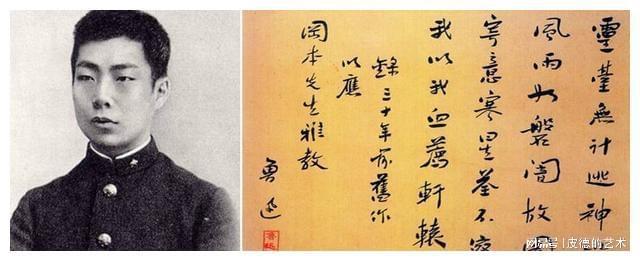 靈臺無計逃神
風雨如磐闇故園
寄意寒星荃不察
我以我血薦軒轅
錄三十年前舊作
以應
岡本先生雅教
魯迅
网易号 | 皮德的艺术